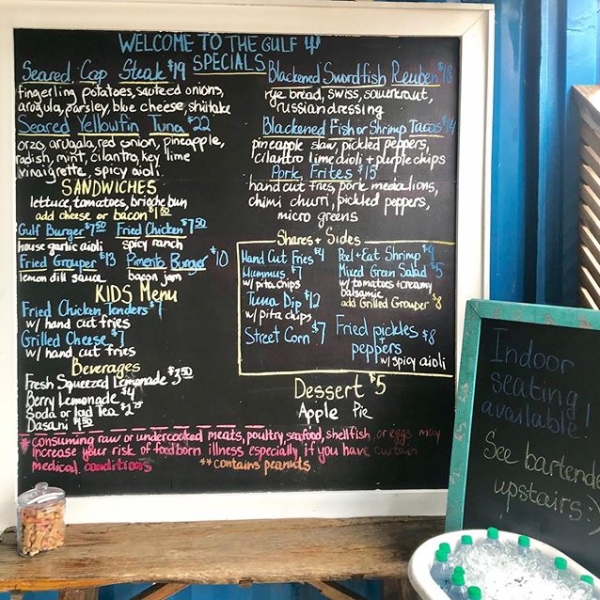 WELCOME TO THE GULF
SPECIALS
Seared Cap Steak $19
fingerling potatoes, sauteed onions,
arugula, parsley, blue cheese, shiitake
Seared Yellowfin Tuna $22
orzo, arugala, red onion, pineapple,
radish, mint, cilantro, key lime
vinaigrette, spicy aioli
SANDWICHES
lettuce, tomatoes, brioche bun
add cheese or bacon $1.50
Gulf Burger $7.50 Fried Chicken $7.50
house garlic aioli spicy ranch
Fried Grouper $13 Pimento Burger $10
lemon dill sauce bacon jam
KIDS Menu
Fried Chicken Tenders
w/ hand cut fries
Grilled Cheese $7
w/ hand cut fries
Beverages
Fresh Squeezed Lemonade $3.50
Berry Lemonade $4
Soda or Iced Tea
Dasani
Blackened Swordfish Reuben $18
rye bread, swiss, sauerkraut,
russian dressing
Blackened Fish or Shrimp Tacos $14
pineapple slaw, pickled peppers,
cilantro lime aioli + purple chips
Pork Frites $15
hand cut fries, pork medallions,
chimi churri, pickled peppers,
micro greens
Shares + Sides
Hand Cut Fries $4
Hummus $7
w/ pita chips
Tuna Dip $12
w/ pita chips
Street Corn $7
Peel + Eat Shrimp
Mixed Green Salad $5
w/ tomatoes + creamy
balsamic
add Grilled Grouper $8
Fried pickles $8
+ peppers
w/ spicy aioli
Dessert $5
Apple Pie
* consuming raw or undercooked meats, poultry, seafood, shellfish, or eggs may
increase your risk of foodborn illness especially if you have certain
medical conditions ** contains peanuts
Indoor
seating
available!
See bartende
upstairs :)